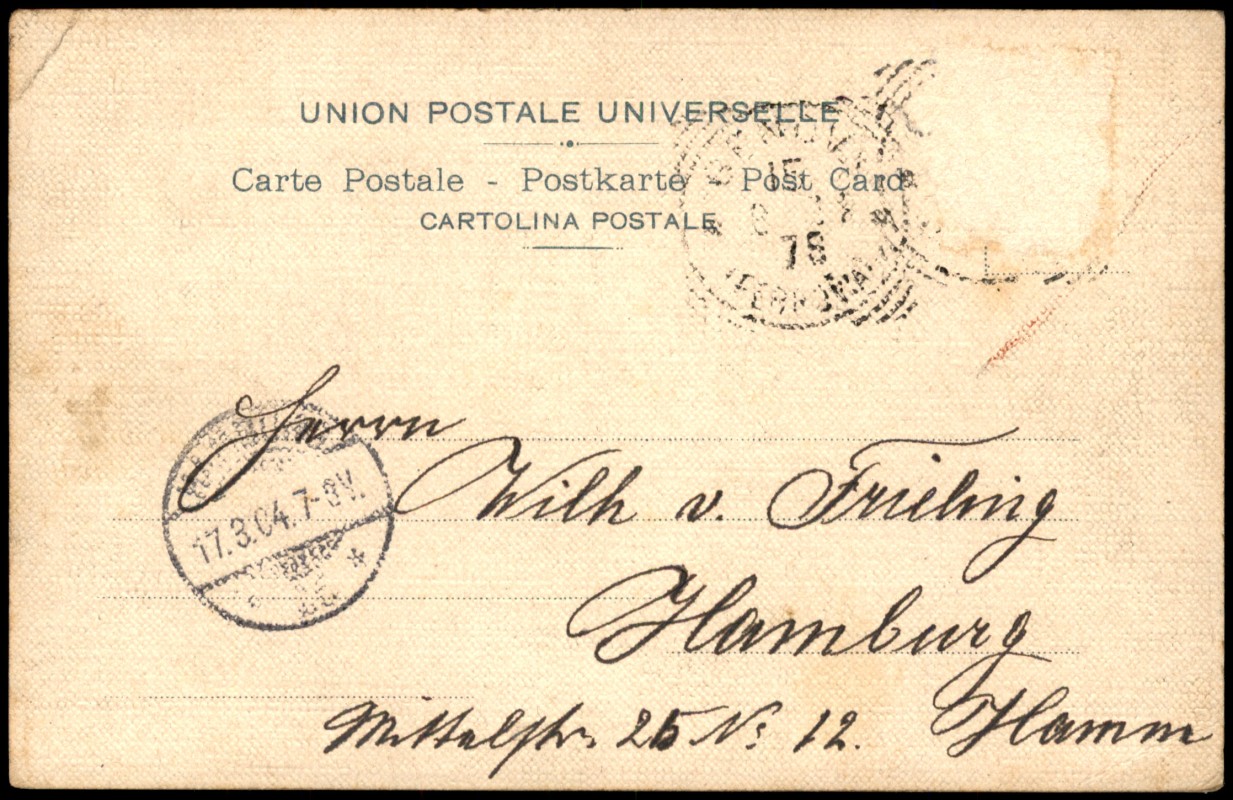 UNION POSTALE UNIVERSELLE
Carte Postale - Postkarte - Post Card
CARTOLINA POSTALE
GENOVA
15
78
(FERROVIA)
17.3.04.7-8V.
Herrn
Wilh v. Frieling
Hamburg
Mittelstr. 25 No. 12. Hamm